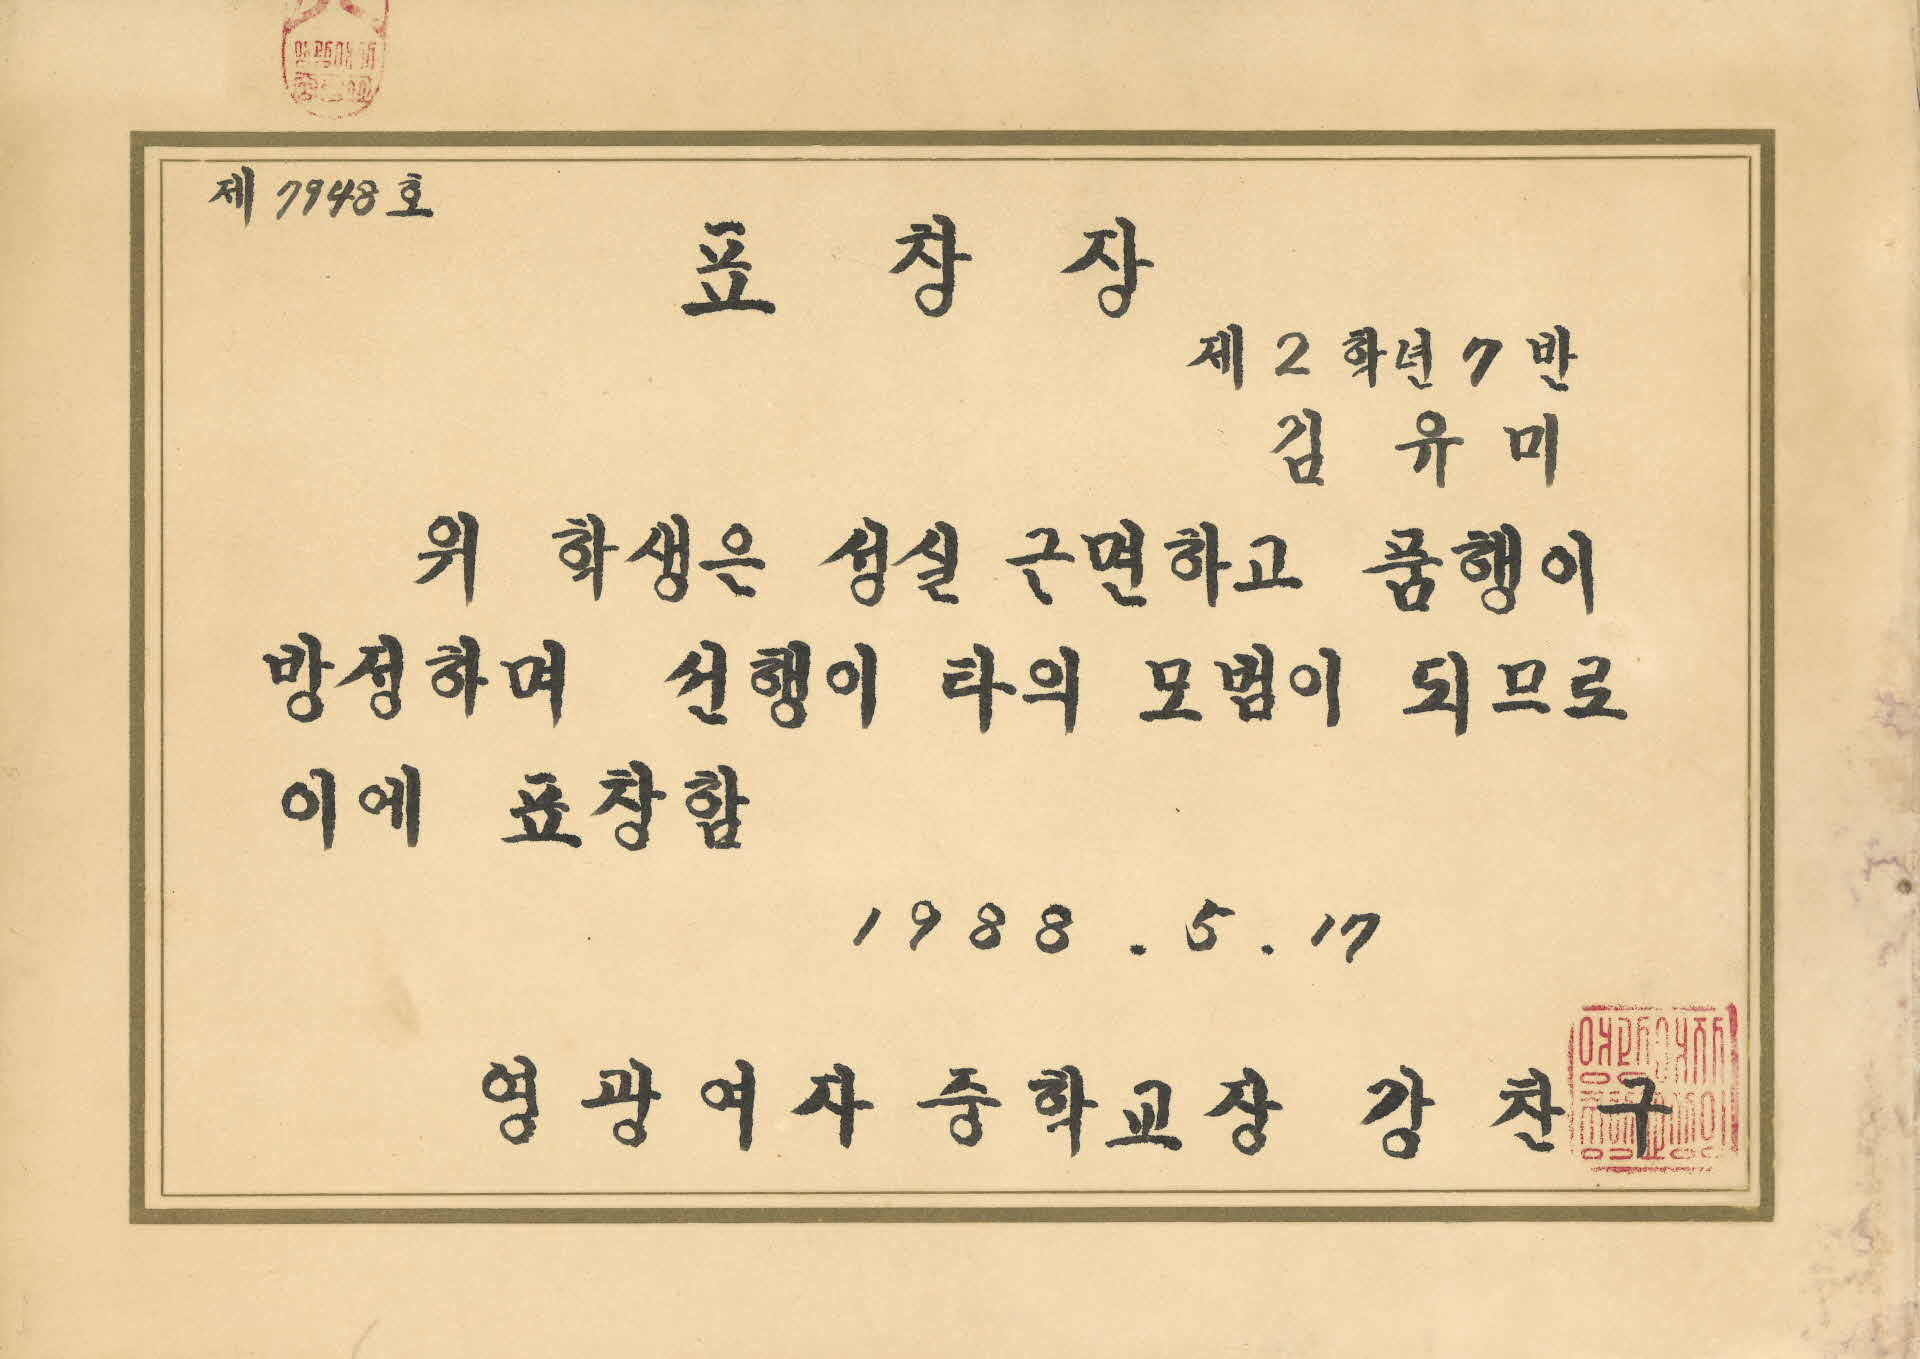 제 7948 호
표 창 장
제 2 학년 7 반
김 유 미
위 학생은 성실 근면하고 품행이
방정하며 선행이 타의 모범이 되므로
이에 표창함
1988. 5. 17
영광여자중학교장 강찬구